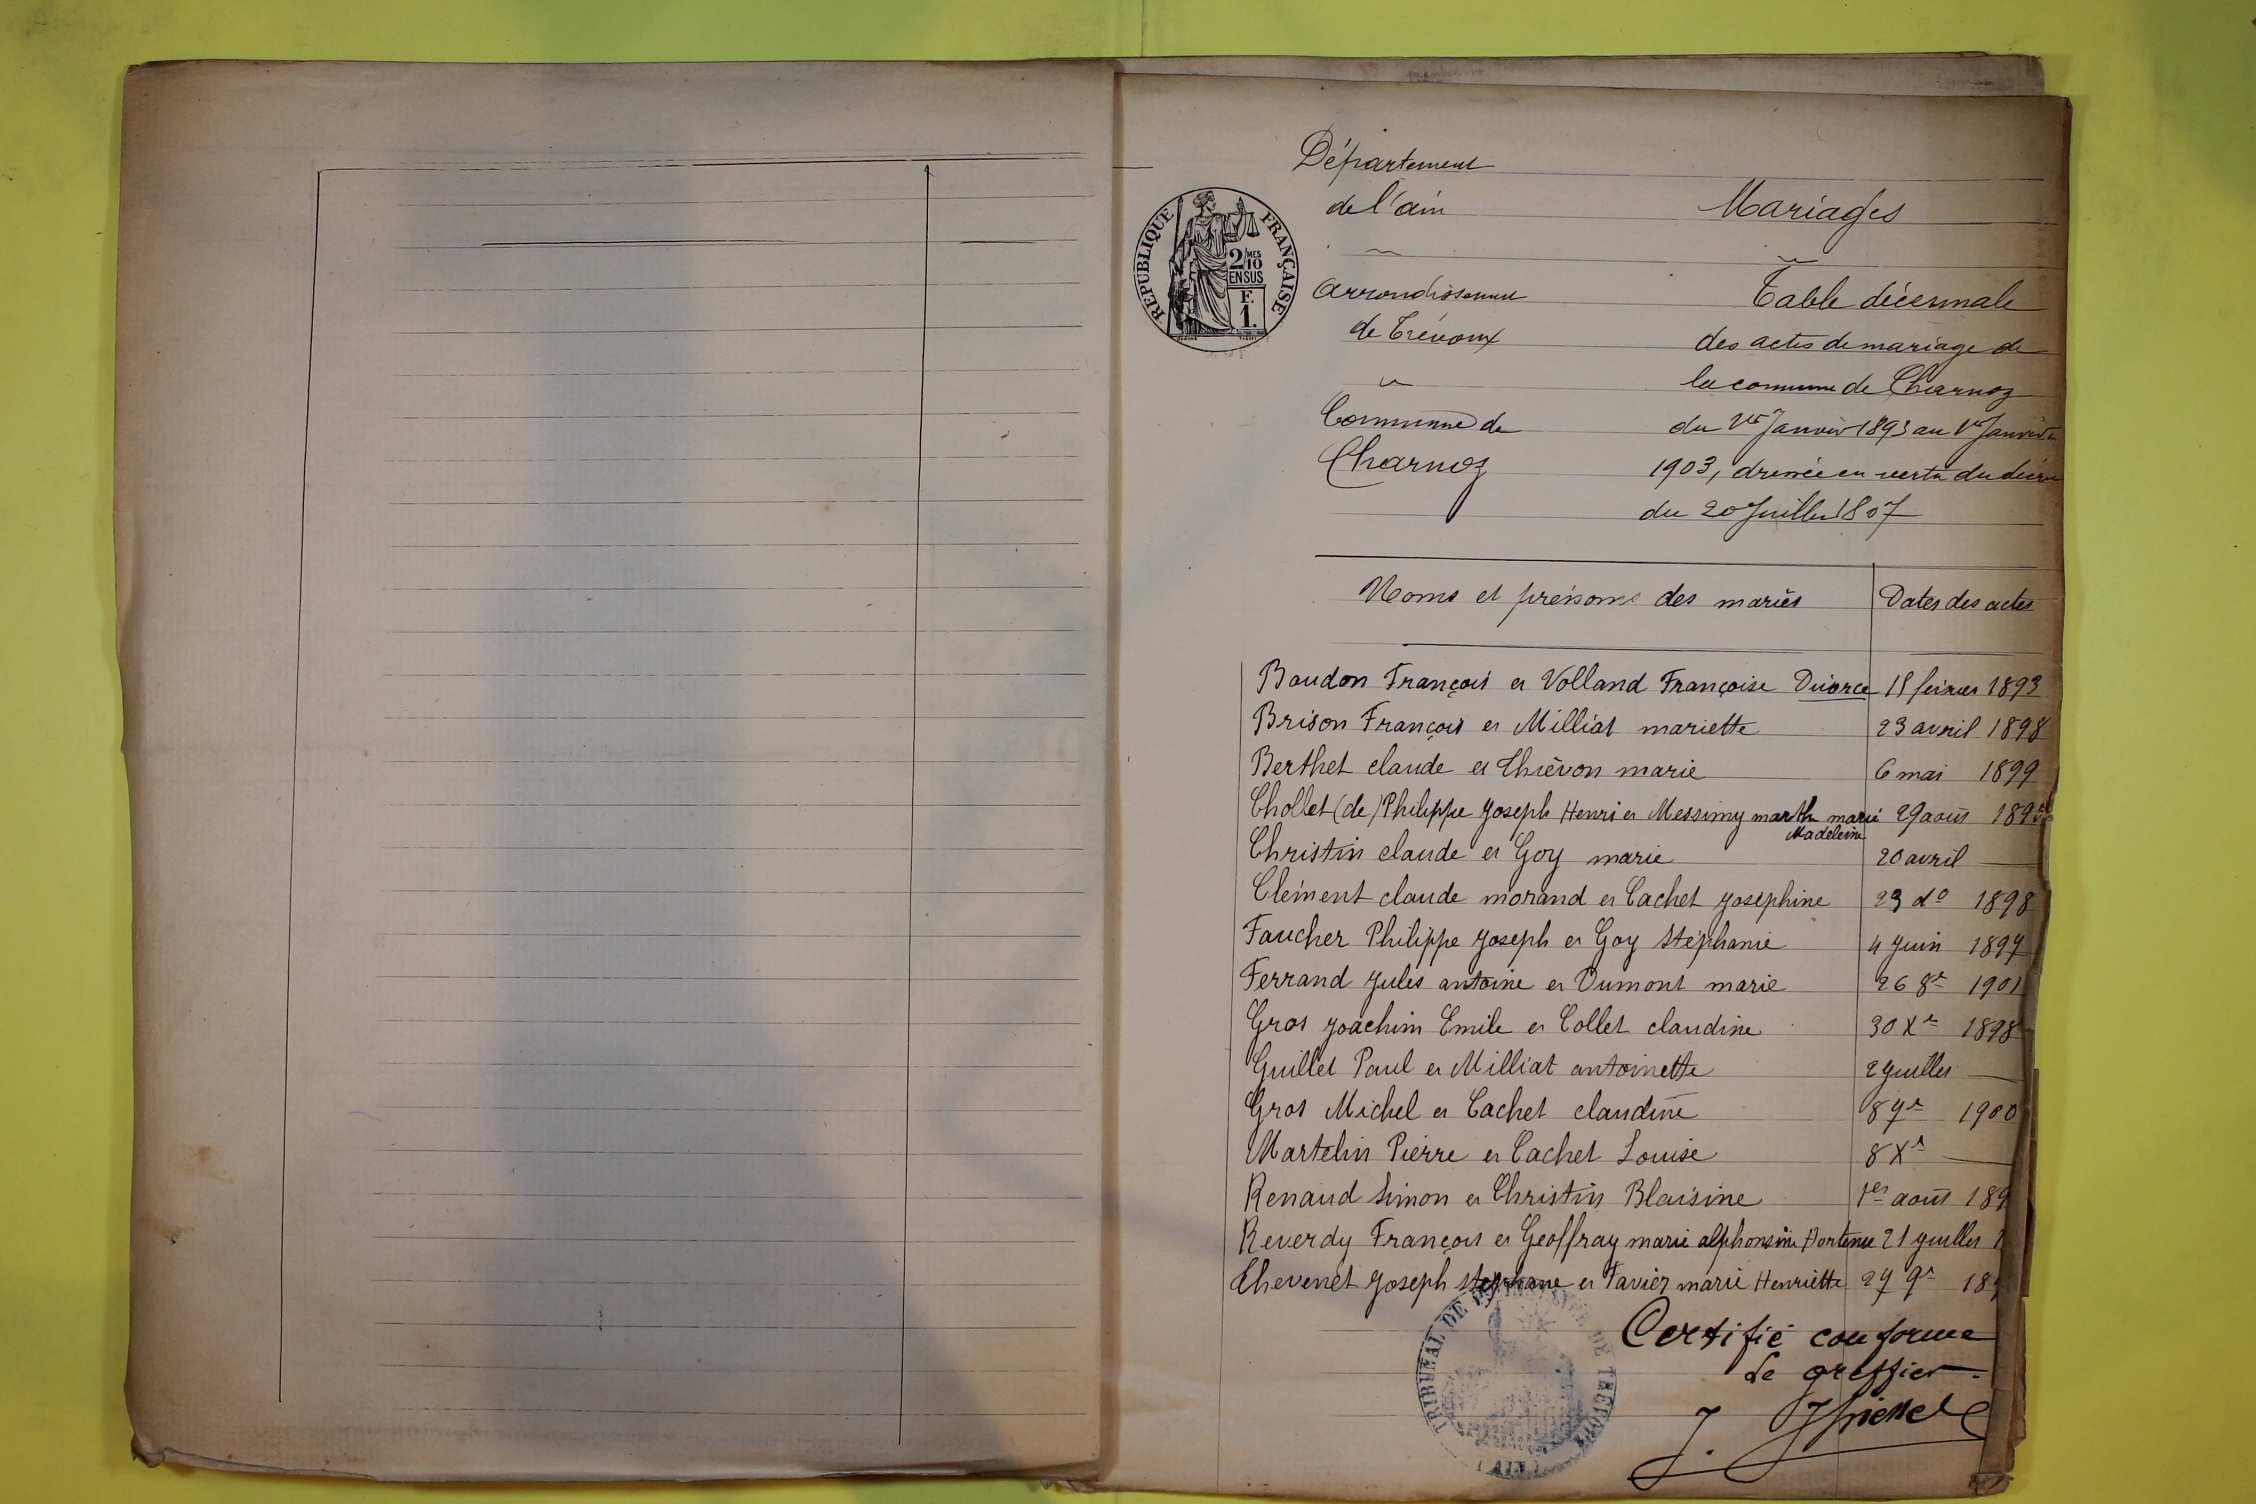 Département
de l'ain
Mariages
RÉPUBLIQUE FRANÇAISE
2/10 MES
EN SUS
F.
1.
arrondissement
de Trévoux
Table décennale
des actes de mariage de
la commune de Charnoz
Commune de
Charnoz
du 1er Janvier 1893 au 1er Janvier
1903, dressée en vertu du décret
du 20 Juillet 1807
Noms et prénoms des mariés
Dates des actes
Baudon François et Volland Françoise Divorce 15 février 1893
Brison François et Milliat mariette 23 avril 1898
Berthet claude et Thiévon marie 6 mai 1899
Chollet (de) Philippe Joseph Henri et Messimy marthe marie 29 août
Madeleine
Christin claude et Goy marie 20 avril —
Clément claude morand et Cachet Josephine 23 do 1898
Faucher Philippe Joseph et Goy Stéphanie 4 Juin 1897
Ferrand Jules antoine et Dumont marie 26 8re 1901
Gros Joachim Emile et Collet claudine 30 Xre 1898
Guillet Paul et Milliat antoinette 2 Juillet —
Gros Michel et Cachet claudine 8 7re 1900
Martelin Pierre et Cachet Louise 8 Xre —
Renaud Simon et Christin Blaisine 1er août 189
Reverdy François et Geoffray marie alphonsine Hortense 21 Juillet 1
Thevenet Joseph stéphane et Favier marie Henriette 27 9re 189
Certifié conforme
Le greffier.
TRIBUNAL DE DE TREVOUX
(AIN)